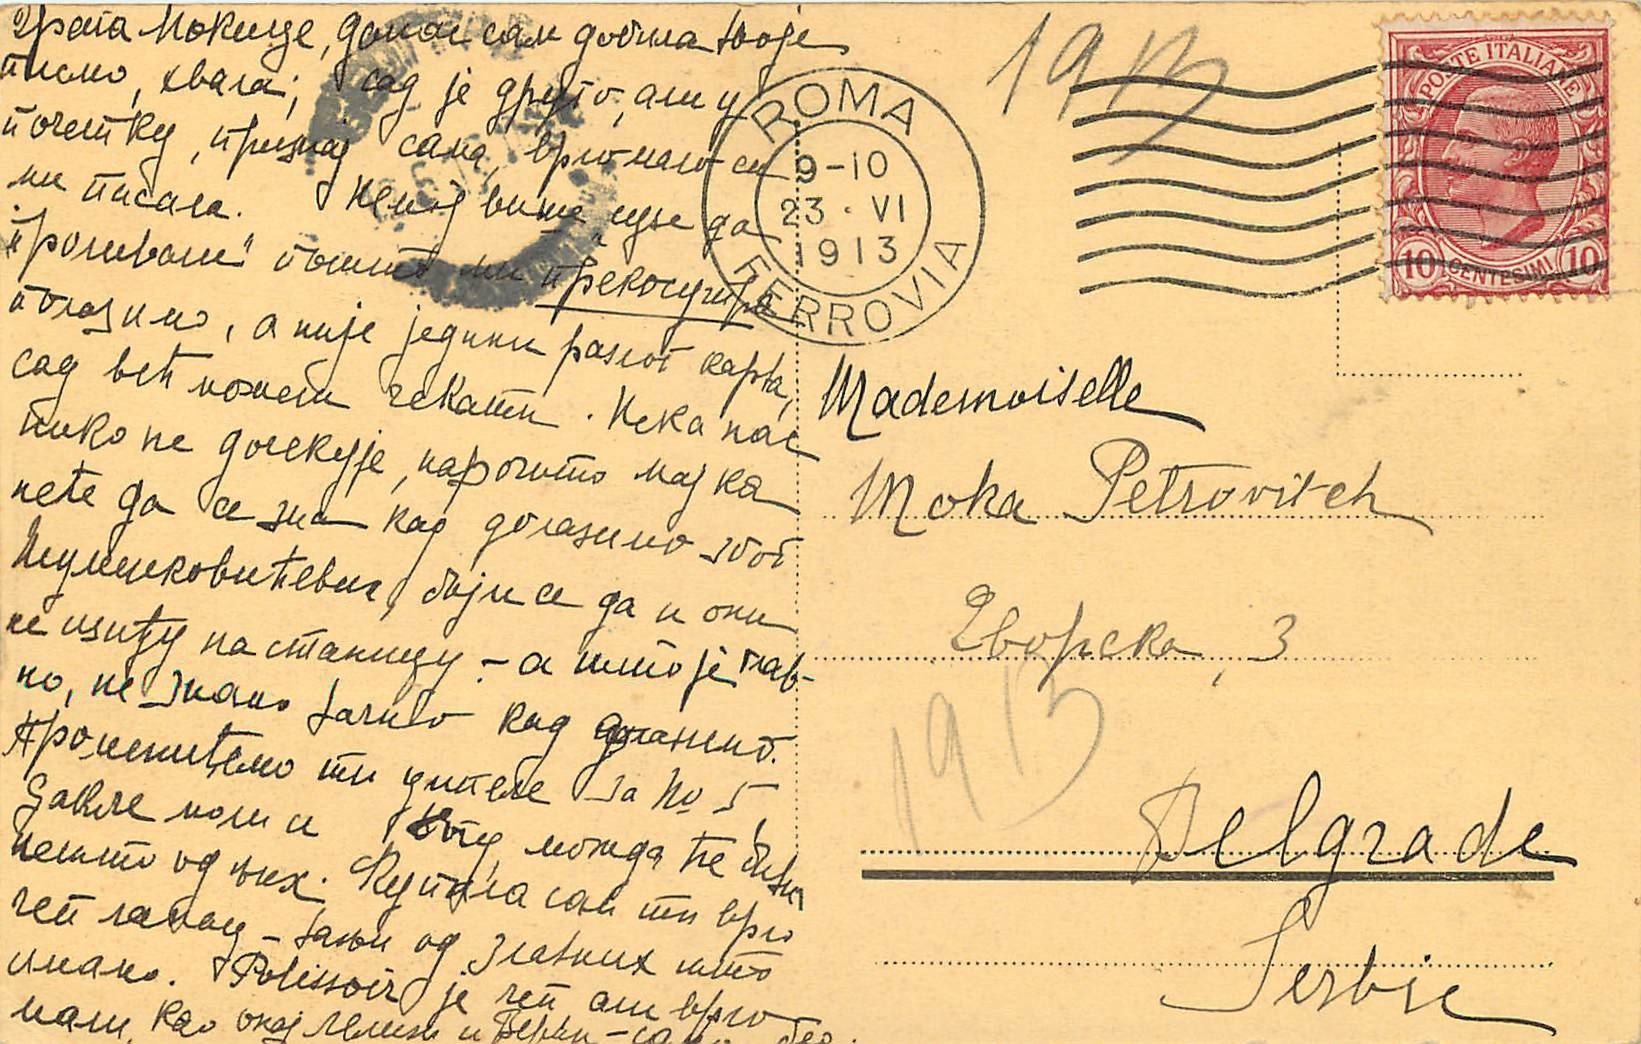 Драга Мокице, данас сам добила твоје
писмо, хвала; сад је друго, али у
почетку, признај сама, врло мало си
ми писала. Немој више више да
"пошиваш" пошто ми прекосутра
полазимо, а није једини разлог карта,
сад већ можеш чекати. Нека нас
нико не дочекује, нарочито мајка
неће да се зна кад долазимо због
боји се да и они
не изиђу на станицу – а што је глав-
но, не знамо тачно кад долазимо.
Променићемо ти ципеле за № 5,
давле моли се Богу, можда ће бити
нешто од њих. Купила сам ти врло
леп ланац – тањи од златних што
имамо. Polissoir је леп али врло
мали, као онај
1913
ROMA
9-10
23 · VI
1913
FERROVIA
POSTE ITALIANE
10 CENTESIMI 10
Mademoiselle
Moka Petrovitch
Дворска, 3
1913
Belgrade
Serbie